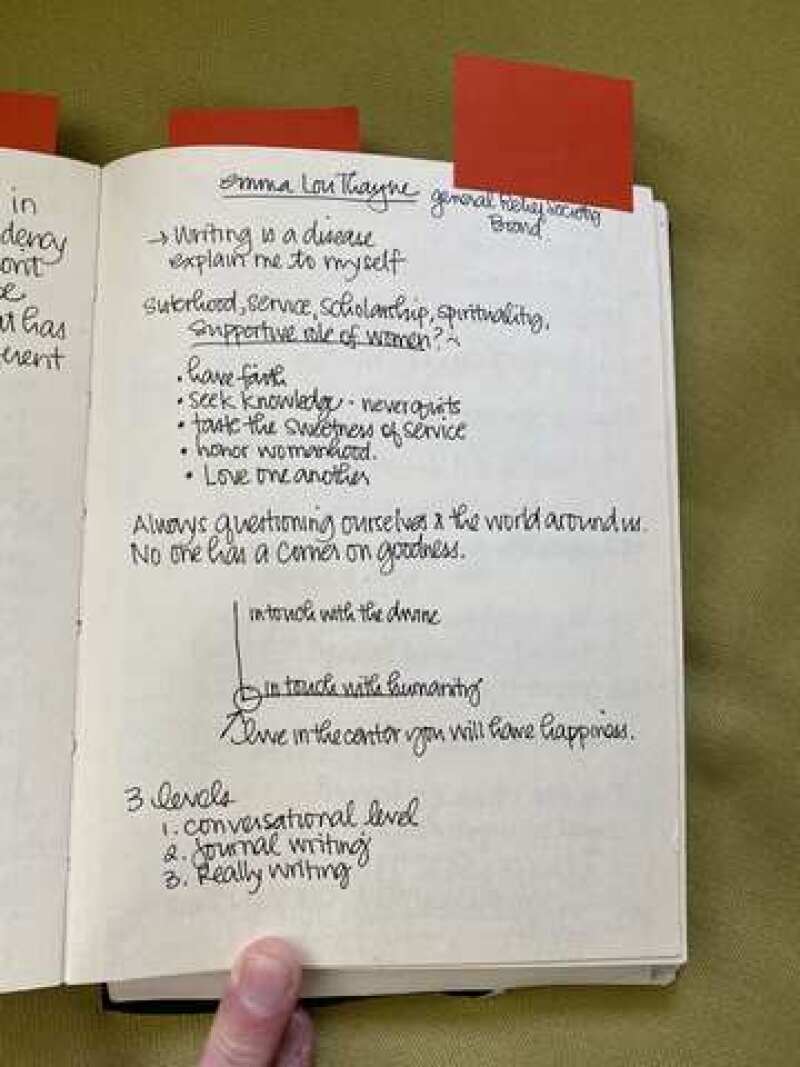 in
dency
on't
e
at has
erent
Emma Lou Thayne
general Relief Society
Board
→ Writing is a disease
explain me to myself
sisterhood, service, scholarship, spirituality,
supportive role of women?
• have faith
• seek knowledge · never quits
• taste the sweetness of service
• honor womanhood.
• Love one another
Always questioning ourselves & the world around us.
No one has a corner on goodness.
in touch with the divine
in touch with humanity
live in the center you will have happiness.
3 levels
1. conversational level
2. Journal writing
3. Really writing